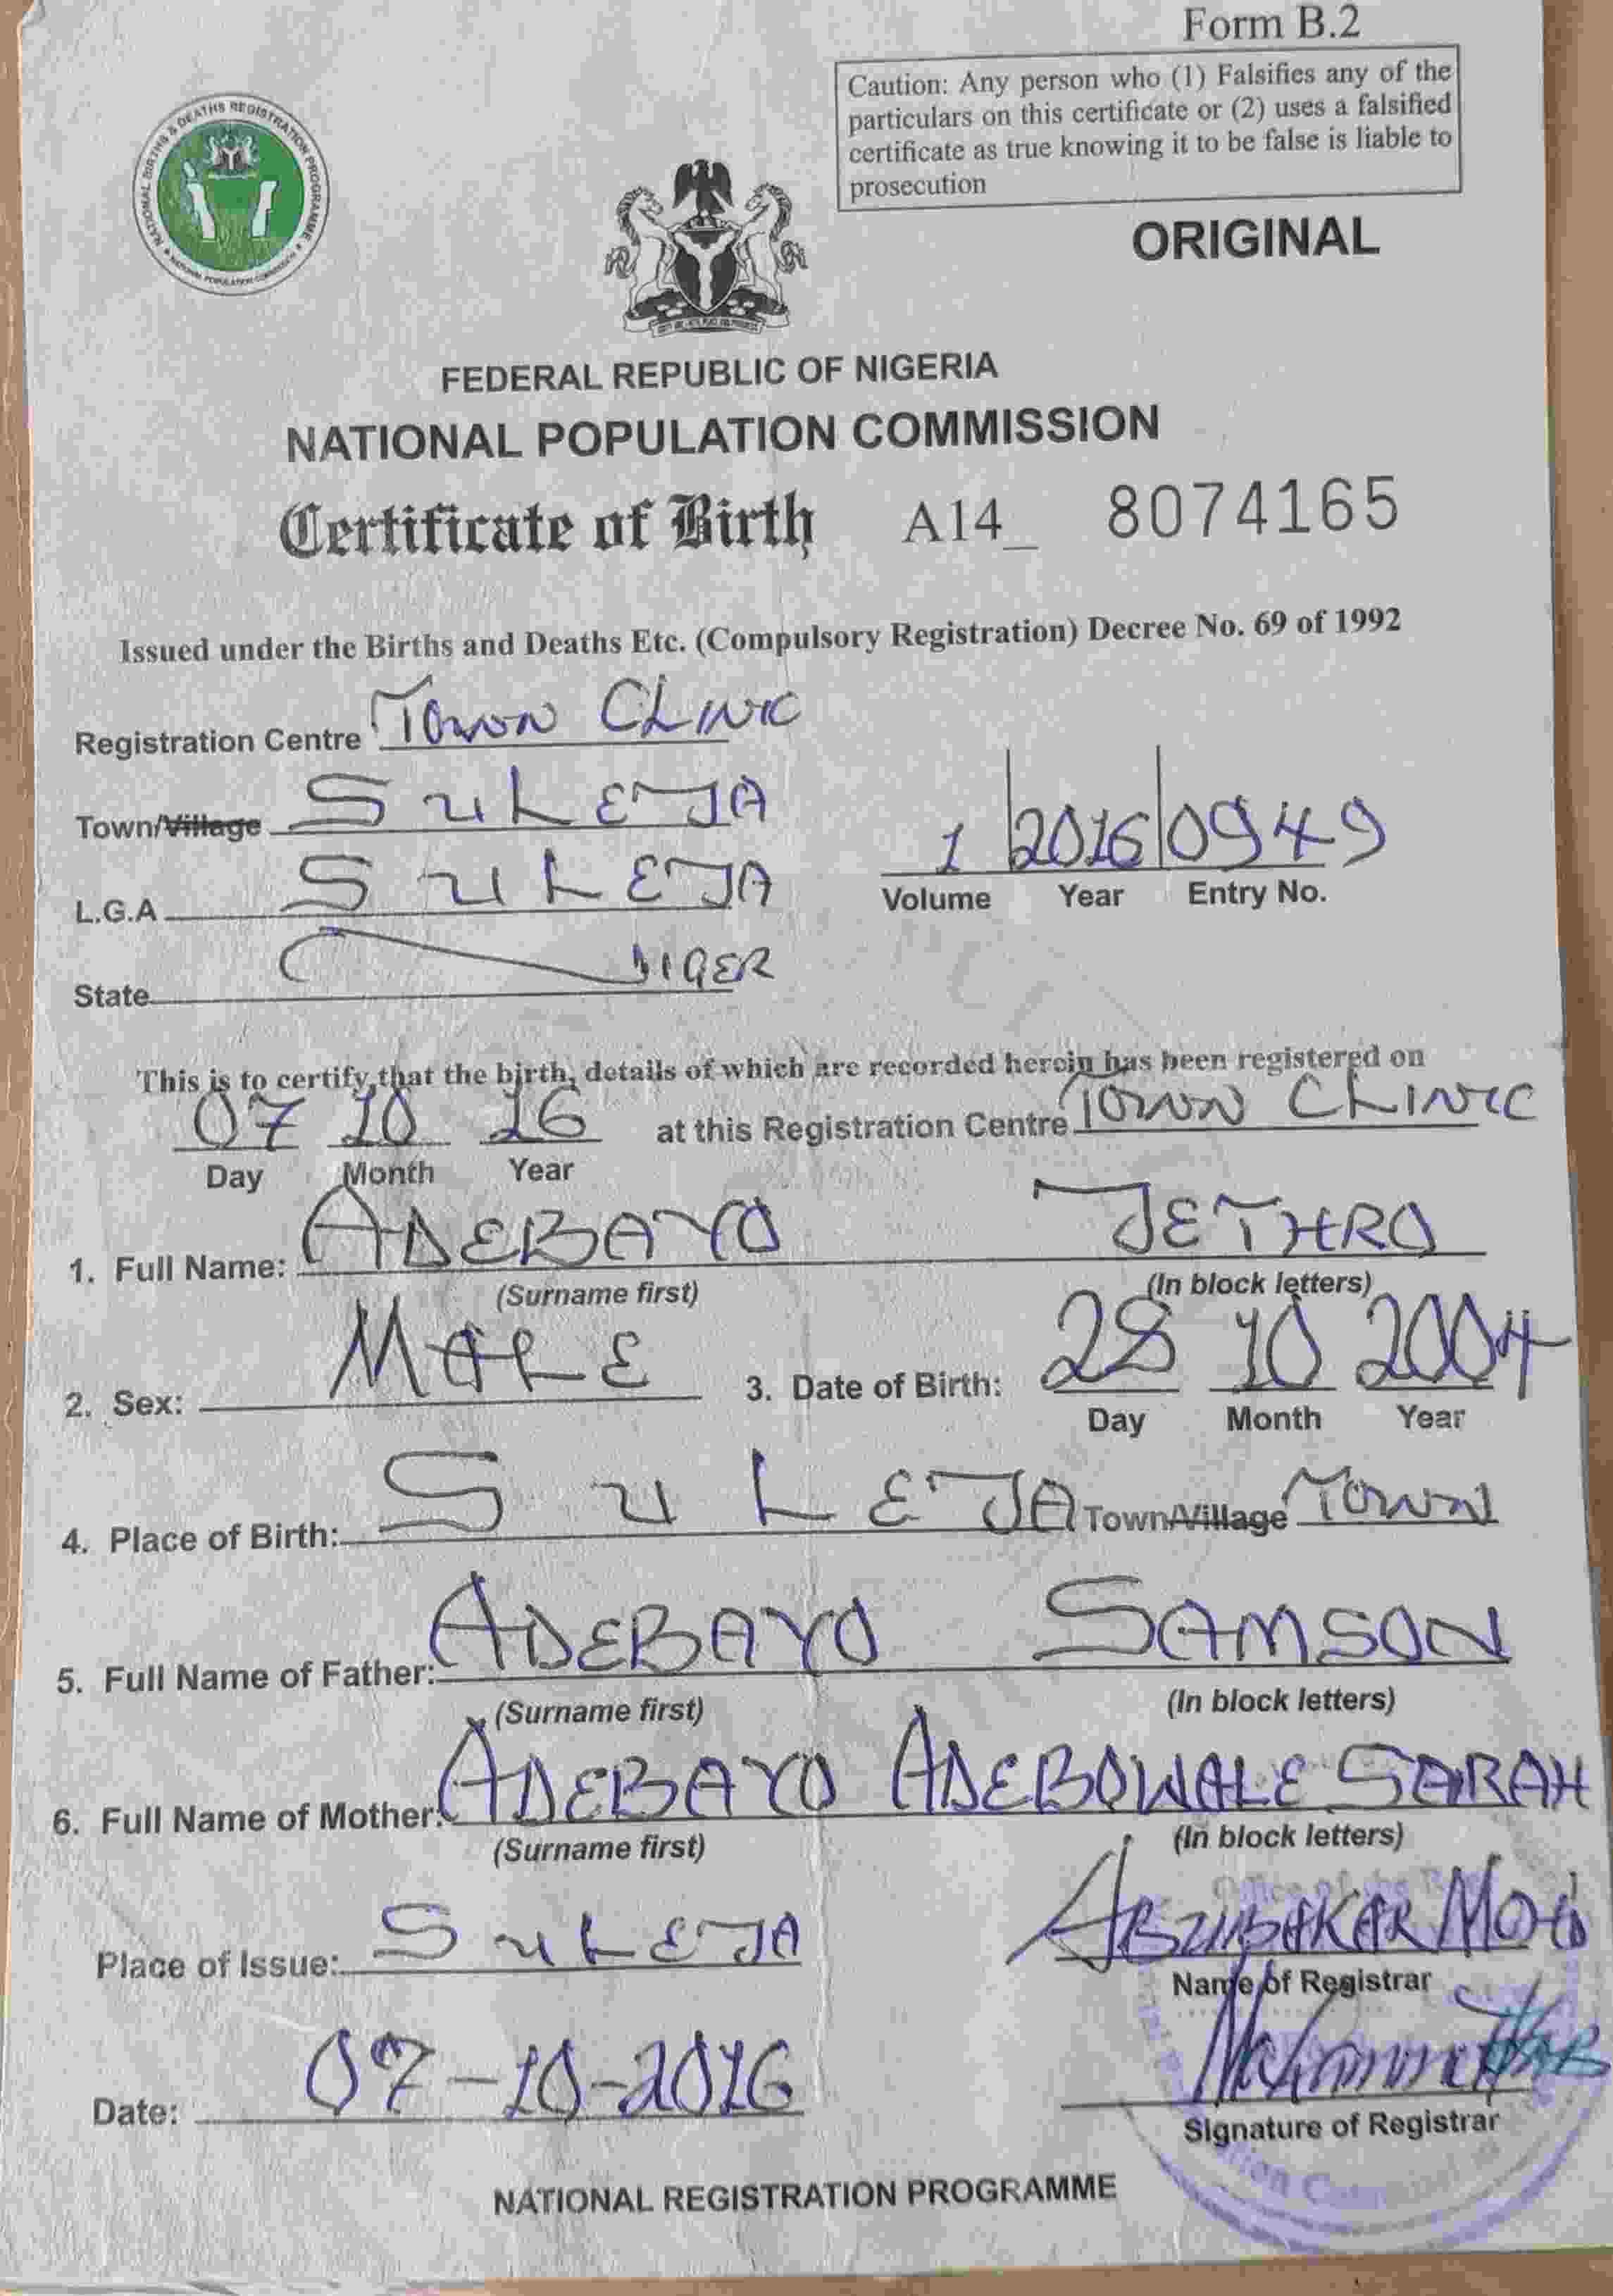 Form B.2
Caution: Any person who (1) Falsifies any of the
particulars on this certificate or (2) uses a falsified
certificate as true knowing it to be false is liable to
prosecution
NATIONAL BIRTHS & DEATHS REGISTRATION PROGRAMME
NATIONAL POPULATION COMMISSION
ORIGINAL
FEDERAL REPUBLIC OF NIGERIA
NATIONAL POPULATION COMMISSION
Certificate of Birth A14_ 8074165
Issued under the Births and Deaths Etc. (Compulsory Registration) Decree No. 69 of 1992
Registration Centre TOWN CLINIC
Town/Village SULEJA
1 2016 0949
Volume Year Entry No.
L.G.A SULEJA
State NIGER
This is to certify that the birth, details of which are recorded herein has been registered on
07 10 16 at this Registration Centre TOWN CLINIC
Day Month Year
1. Full Name: ADEBAYO JETHRO
(Surname first) (In block letters)
2. Sex: MALE 3. Date of Birth: 28 10 2004
Day Month Year
4. Place of Birth: SULEJA Town/Village TOWN
5. Full Name of Father: ADEBAYO SAMSON
(Surname first) (In block letters)
6. Full Name of Mother: ADEBAYO ADEBOWALE SARAH
(Surname first) (In block letters)
Place of Issue: SULEJA ABUBAKAR MOHD
Name of Registrar
Date: 07-10-2016
Signature of Registrar
NATIONAL REGISTRATION PROGRAMME